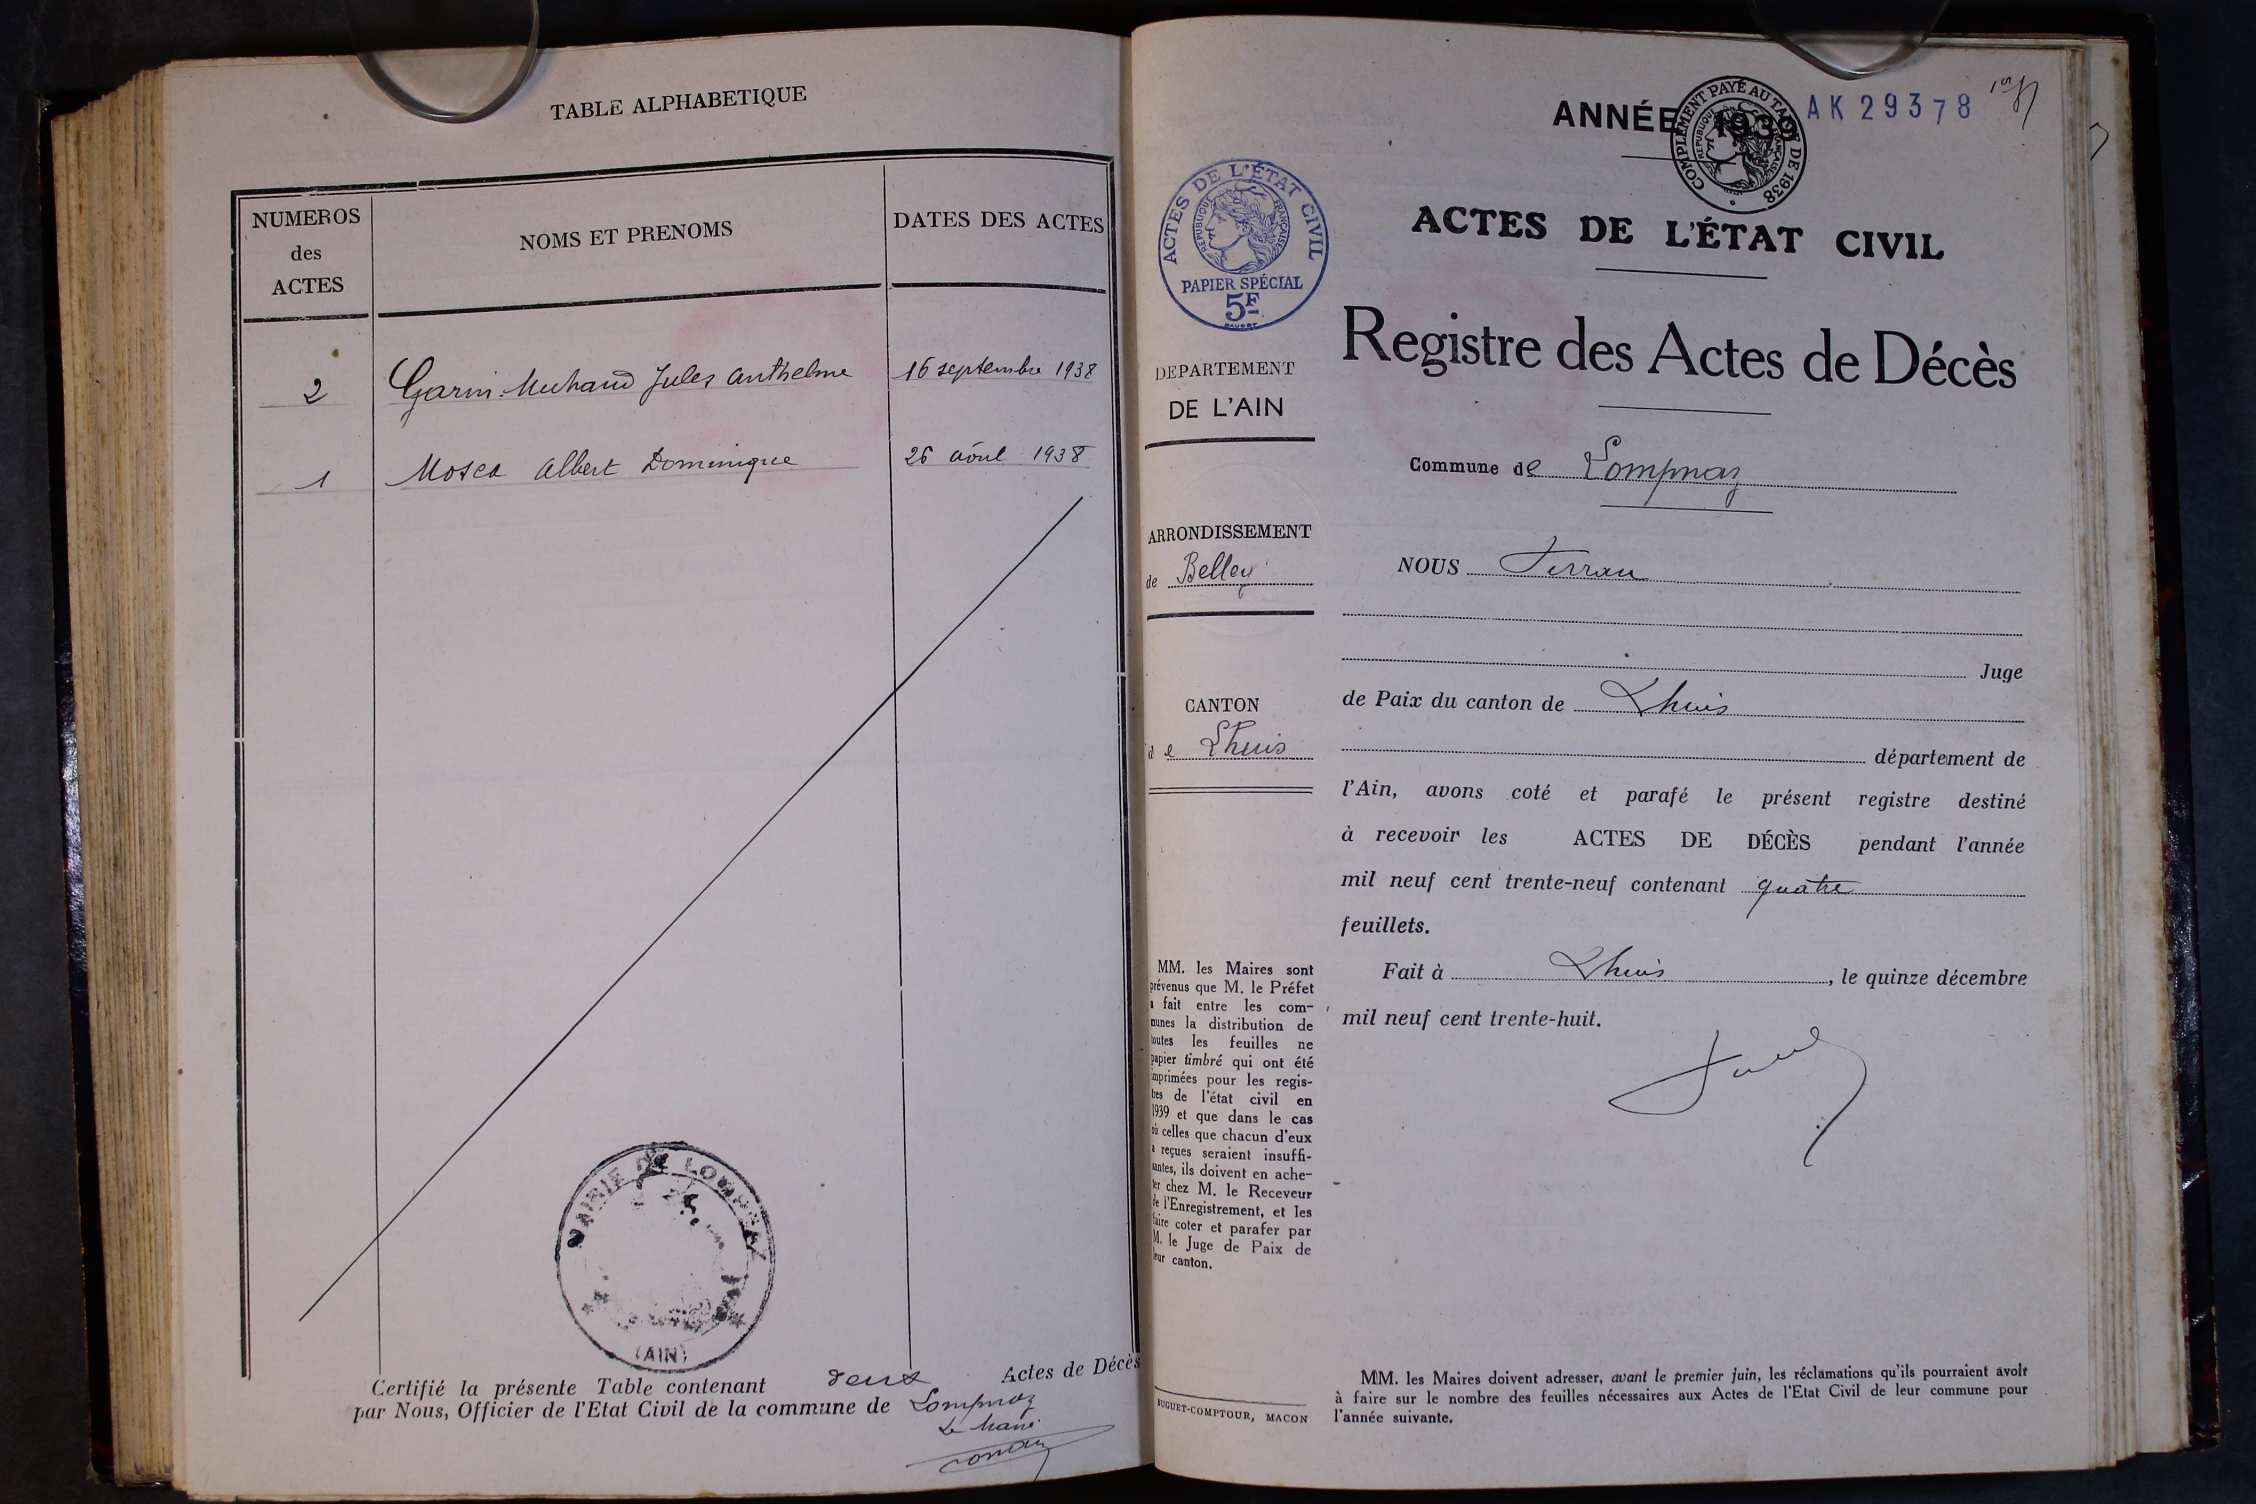 TABLE ALPHABETIQUE
NUMEROS
des
ACTES
NOMS ET PRENOMS
DATES DES ACTES
2 Garin-Michaud Jules Anthelme 16 septembre 1938
1 Mosca Albert Dominique 26 août 1938
MAIRIE DE LOMPNAZ
(AIN)
Certifié la présente Table contenant deux Actes de Décès
par Nous, Officier de l'Etat Civil de la commune de Lompnaz
Le Maire
ANNÉE 1939
COMPLÉMENT PAYÉ AU TARIF DE 1938
RÉPUBLIQUE FRANÇAISE
AK 29378
ACTES DE L'ÉTAT CIVIL
RÉPUBLIQUE FRANÇAISE
PAPIER SPÉCIAL
5F
ACTES DE L'ÉTAT CIVIL
Registre des Actes de Décès
DEPARTEMENT
DE L'AIN
ARRONDISSEMENT
de Belley
CANTON
de Lhuis
Commune de Lompnaz
NOUS
Juge
de Paix du canton de Lhuis
département de
l'Ain, avons coté et parafé le présent registre destiné
à recevoir les ACTES DE DÉCÈS pendant l'année
mil neuf cent trente-neuf contenant quatre
feuillets.
Fait à Lhuis, le quinze décembre
mil neuf cent trente-huit.
MM. les Maires sont
prévenus que M. le Préfet
a fait entre les com-
munes la distribution de
toutes les feuilles ne
papier timbré qui ont été
imprimées pour les regis-
tres de l'état civil en
1939 et que dans le cas
où celles que chacun d'eux
a reçues seraient insuffi-
santes, ils doivent en ache-
ter chez M. le Receveur
de l'Enregistrement, et les
faire coter et parafer par
M. le Juge de Paix de
leur canton.
BUGUET-COMPTOUR, MACON
MM. les Maires doivent adresser, avant le premier juin, les réclamations qu'ils pourraient avoir
à faire sur le nombre des feuilles nécessaires aux Actes de l'Etat Civil de leur commune pour
l'année suivante.